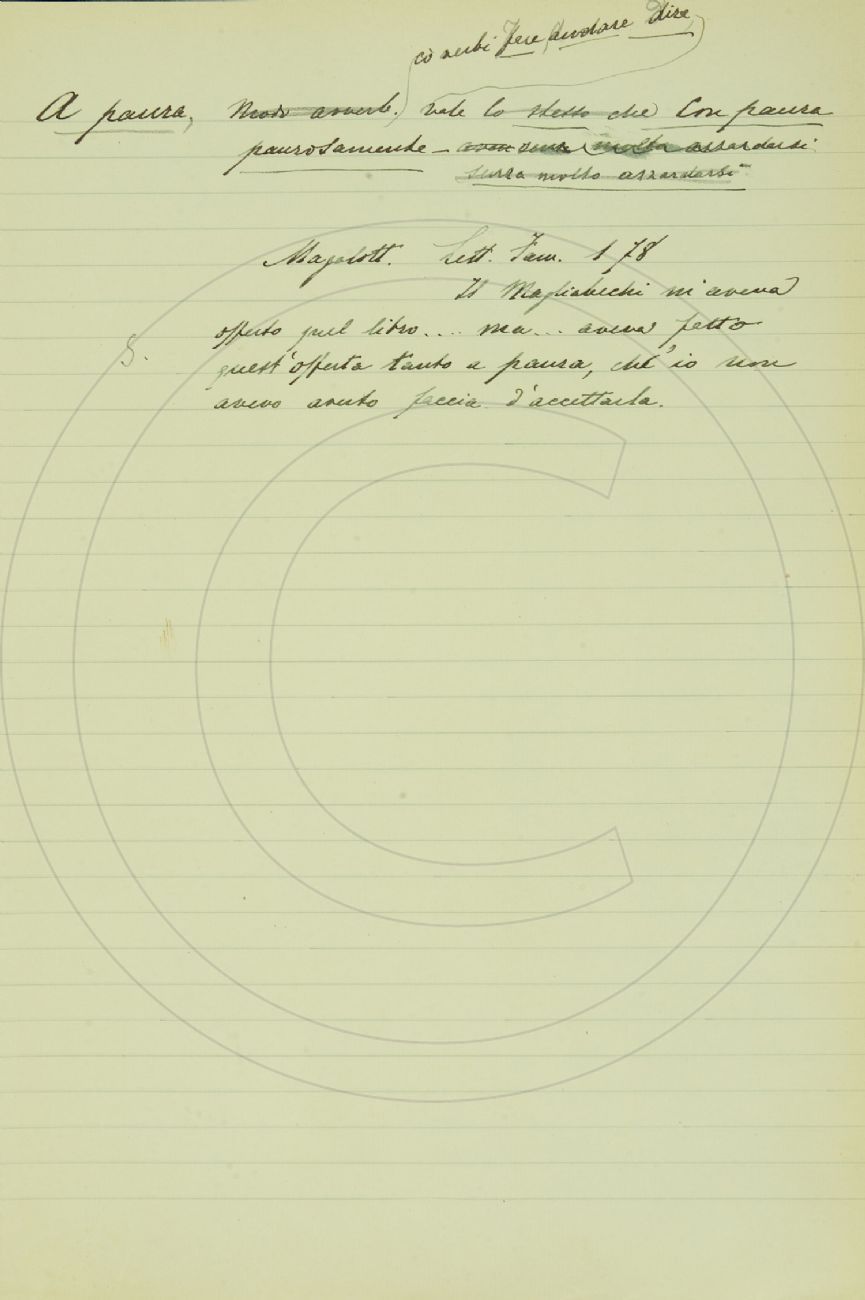 co verbi Fere Andare Dire
A paura, Modo avverb. vale lo stesso che Con paura
paurosamente — senza molto azzardarsi
senza molto azzardarsi
Magalott. Lett. Fam. 1 78
Il Magliabechi m'aveva
offerto quel libro.... ma... aveva fatto
S. quest'offerta tanto a paura, ch'io non
avevo avuto faccia d'accettarla.